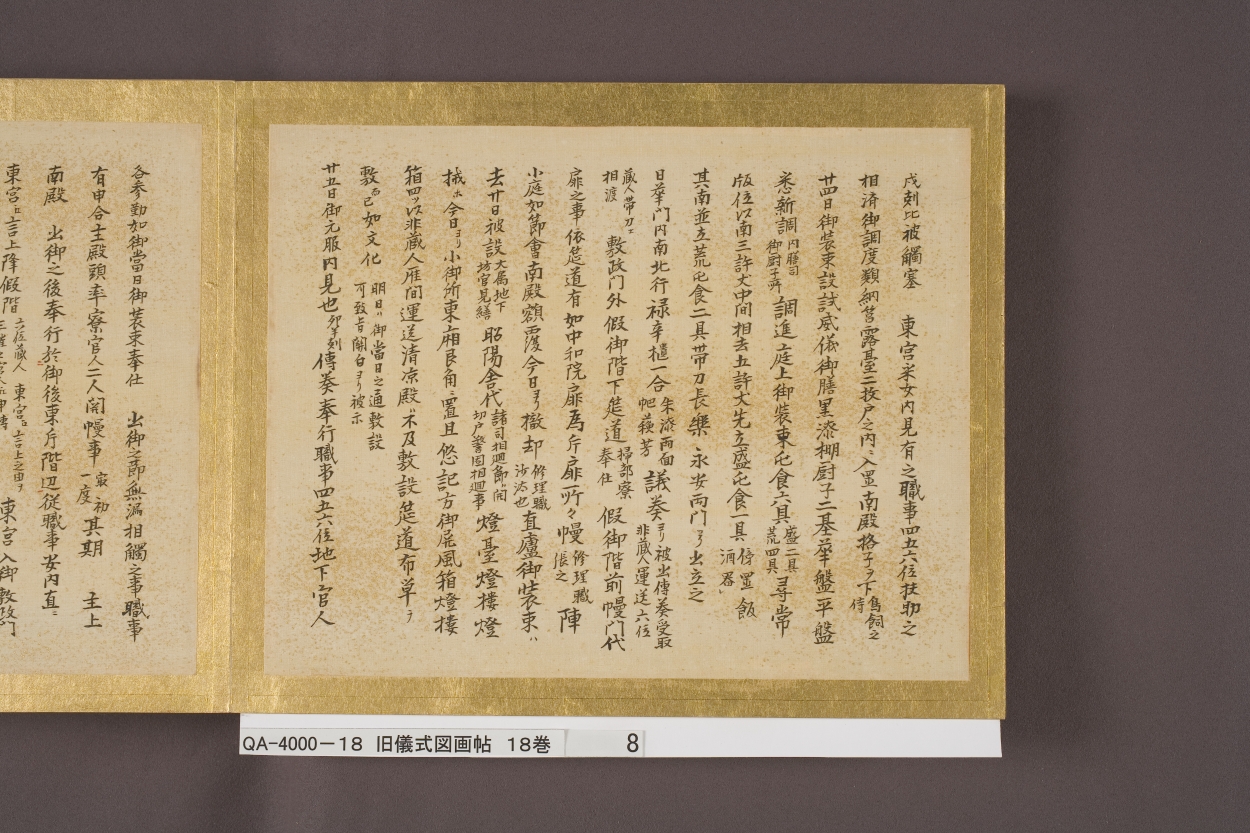 戌刻比被觸塞　東宮采女内見有之職事四五六位扶助之
相済御調度類納筥露臺二枚戸之内ニ入置南殿格子ヲ下
廿四日御装束設試威儀御膳黒漆棚厨子二基華盤平盤
悉新調内膳司御厨子所調進庭上御装束屯食六具盛二具荒四具尋常
版位以南三許丈中間相去五許丈先立盛屯食一具傍置酒器飯
其南並立荒屯食二具帯刀長樂永安両門ヨリ出立之
日華門内南北行禄辛樻一合朱漆両面帊蘓芳議奏ヨリ被出傳奏受取非蔵人運送六位
蔵人帯刀ニ相渡　敷政門外假御階下筵道掃部寮奉仕假御階前幔門代
扉之事依筵道有如中和院扉為片扉所々幔修理職張之陣
小庭如節會南殿額覆今日ヨリ撤却修理職沙汰也直廬御装束ハ
去廿日被設大属地下坊官見繕昭陽舎代諸司相廻節ハ開切戸警固相廻事燈臺燈樓燈
械ホ今日ヨリ小御所東廂艮角ニ置且悠記方御屏風箱燈樓
箱四ツ以非蔵人雁間運送清凉殿ホ不及敷設筵道布單ヲ
敷而已如文化明日ハ御當日之通敷設可致旨関白ヨリ被示
廿五日御元服内見也卯半刻傳奏奉行職事四五六位地下官人
各参勤如御當日御装束奉仕　出御之節無漏相觸之事職事
有申合主殿頭率寮官人二人開幔事最初一度其期　主上
南殿　出御之後奉行於御後東庁階辺従職事安内直ニ
東宮ニ言上降假階六位蔵人東宮ニ言上之由ヲ東宮入御敷政門
QA-4000-18　旧儀式図画帖　18巻　8